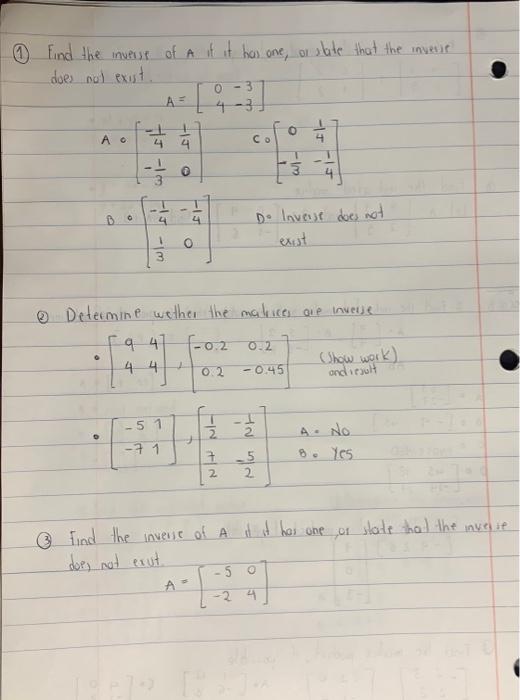 ① Find the inverse of A if it has one, or state that the inverse
does not exist.
A = [ 0 -3
4 -3 ]
A. [ -1/4 1/4
-1/3 0 ]
C. [ 0 1/4
-1/3 -1/4 ]
B. [ -1/4 -1/4
1/3 0 ]
D. Inverse does not
exist
② Determine wether the matrices are inverse
• [ 9 4
4 4 ] , [ -0.2 0.2
0.2 -0.45 ]
(Show work)
and result
• [ -5 1
-7 1 ] , [ 1/2 -1/2
7/2 -5/2 ]
A. No
B. Yes
③ Find the inverse of A if it has one, or state that the inverse
does not exist.
A = [ -5 0
-2 4 ]